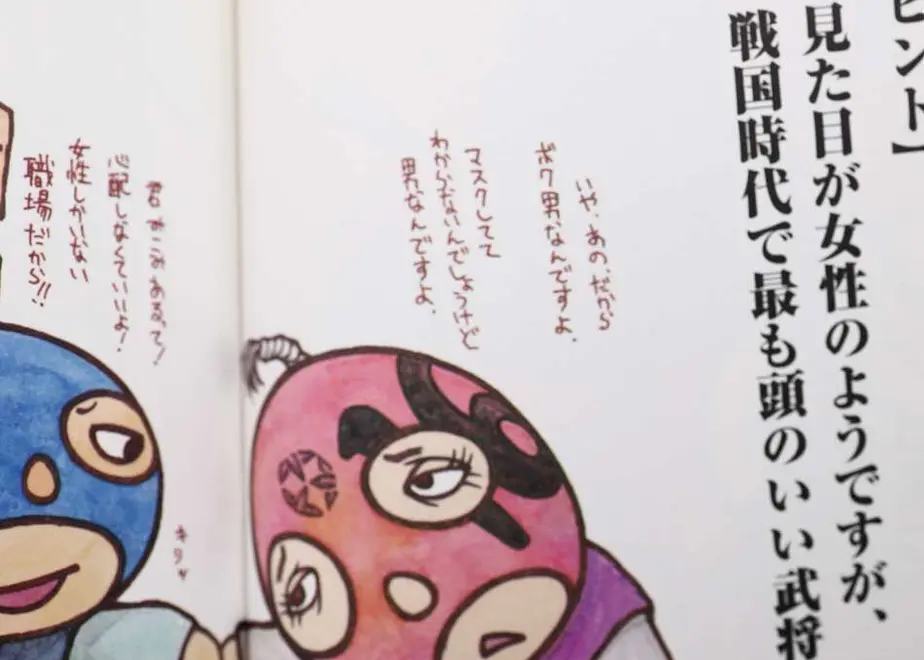 ヒント】
見た目が女性のようですが、
戦国時代で最も頭のいい武将
いや、あの、だから
ボク男なんですよ。
マスクしてて
わからないんでしょうけど
男なんですよ。
心配しなくていいよ!
女性しかいない
職場だから!!
キリッ